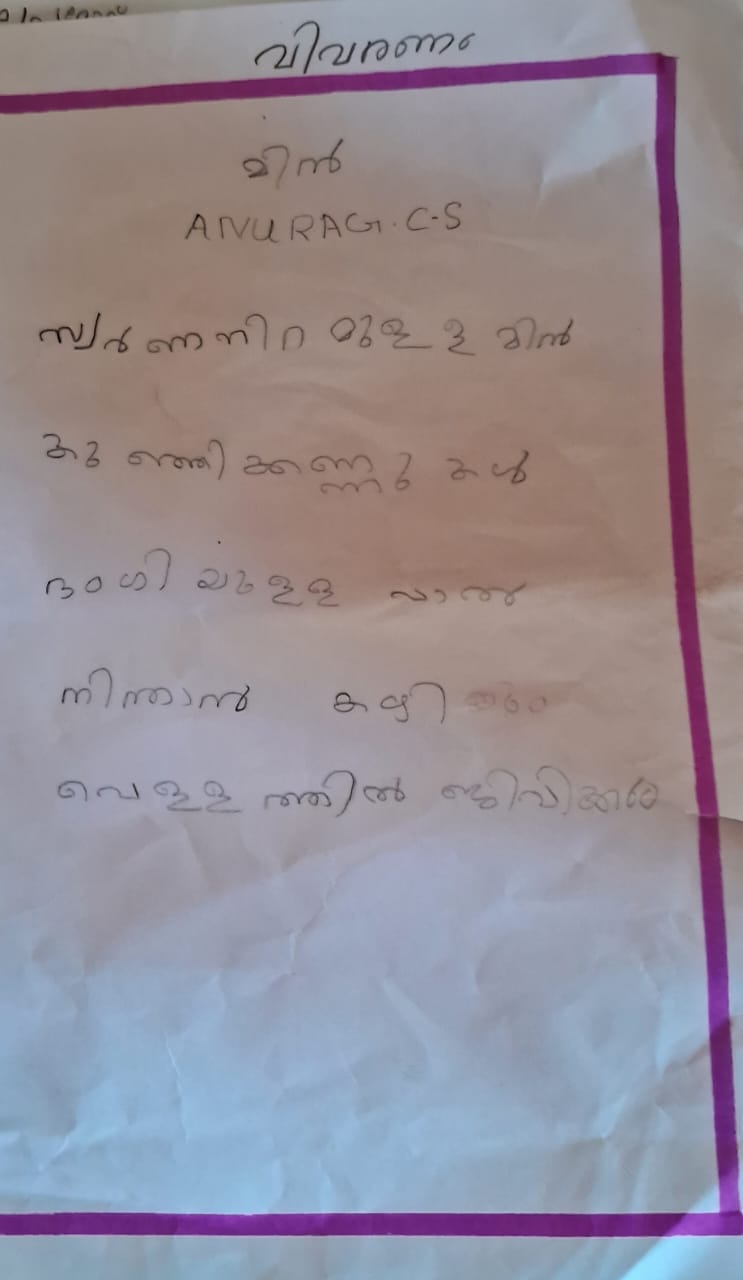 വിവരണം
മിൻ
ANURAG.C-S
സ്വർണനിറമുള്ള മിൻ
കുഞ്ഞിക്കണ്ണുകൾ
ഭംഗിയുള്ള വാൽ
നിന്താൻ കഴിയും
വെള്ളത്തിൽ ജിവിക്കും